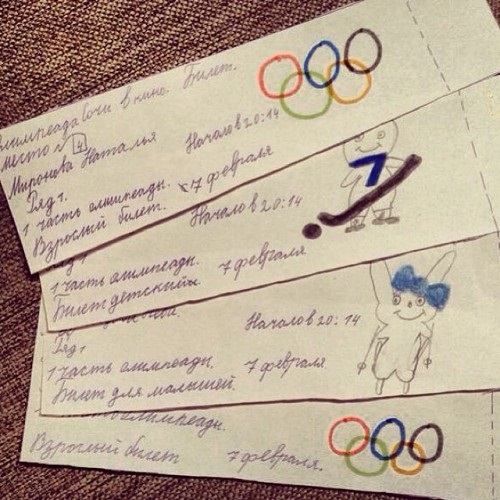 Олимпеада Сочи в кино. Билет.
место № 4
Миронова Наталья
Ряд 1. Началов 20:14
1 часть олимпеады. 7 февраля
Взрослый билет.
Ряд 1 Началов 20:14
1 часть олимпеады. 7 февраля
Билет детский
7
Ряд 1 Началов 20:14
1 часть олимпеады. 7 февраля
Билет для малышей.
олимпеады.
Взрослый билет 7 февраля.